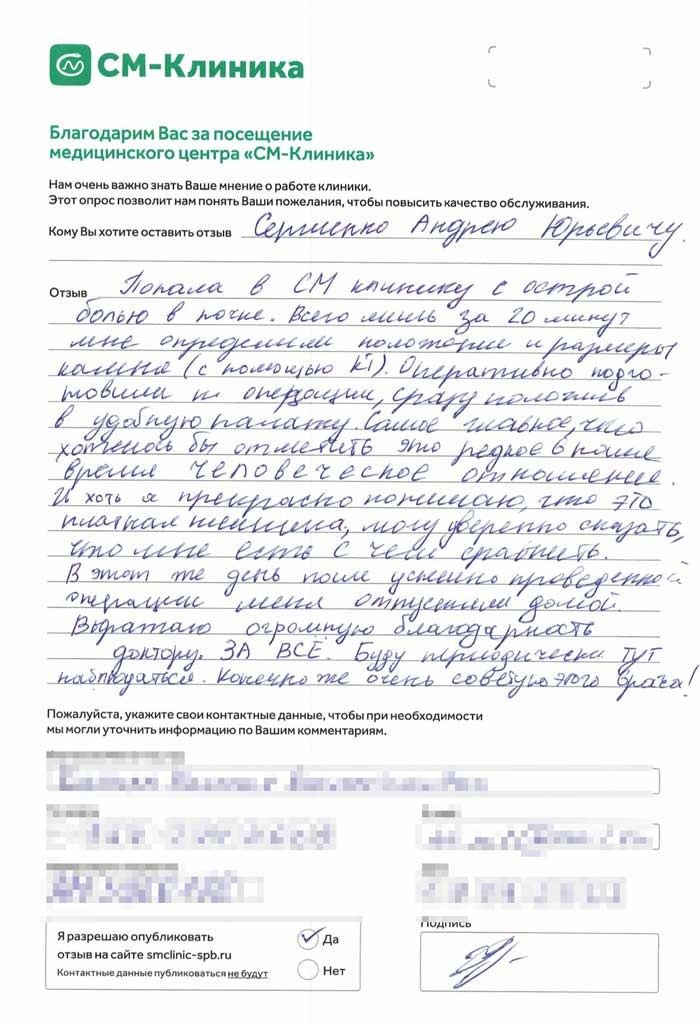 СМ-Клиника
Благодарим Вас за посещение
медицинского центра «СМ-Клиника»
Нам очень важно знать Ваше мнение о работе клиники.
Этот опрос позволит нам понять Ваши пожелания, чтобы повысить качество обслуживания.
Кому Вы хотите оставить отзыв Сергиенко Андрею Юрьевичу.
Отзыв Попала в СМ клинику с острой
болью в почке. Всего лишь за 20 минут
мне определили положение и размеры
камня (с помощью КТ). Оперативно подго-
товили к операции, сразу положив
в удобную палату. Самое главное, что
хотелось бы отметить это редкое в наше
время человеческое отношение.
И хоть я прекрасно понимаю, что это
платная медицина, могу уверенно сказать,
что мне есть с чем сравнить.
В этот же день после успешно проведенной
операции меня отпустили домой.
Выражаю огромную благодарность
доктору. ЗА ВСЁ. Буду периодически тут
наблюдаться. Конечно же очень советую этого врача!
Пожалуйста, укажите свои контактные данные, чтобы при необходимости
мы могли уточнить информацию по Вашим комментариям.
Подпись
Я разрешаю опубликовать
отзыв на сайте smclinic-spb.ru
Контактные данные публиковаться не будут
Да
Нет